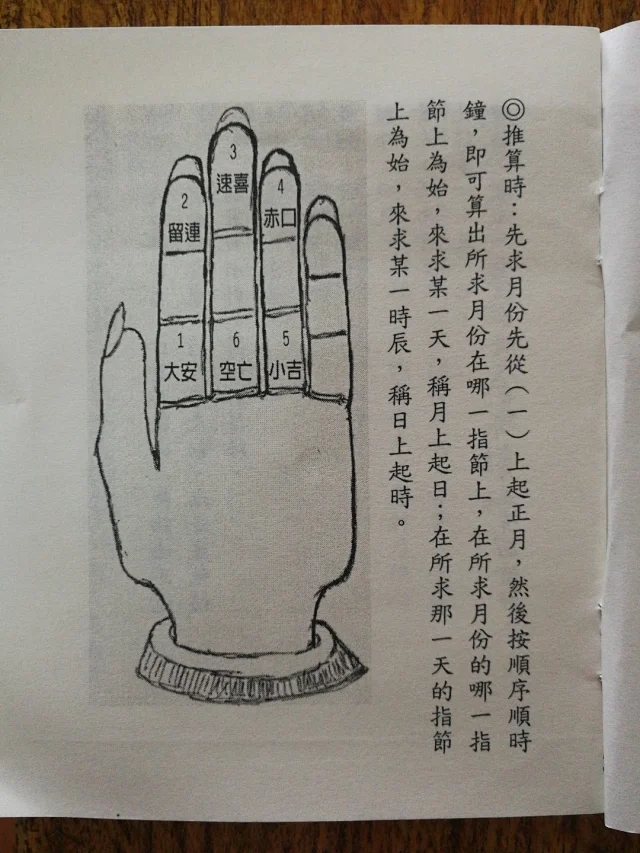 ◎推算時：先求月份先從（一）上起正月，然後按順序順時
鐘，即可算出所求月份在哪一指節上，在所求月份的哪一指
節上為始，來求某一天，稱月上起日；在所求那一天的指節
上為始，來求某一時辰，稱日上起時。
3
速喜
2
留連
4
赤口
1
大安
6
空亡
5
小吉